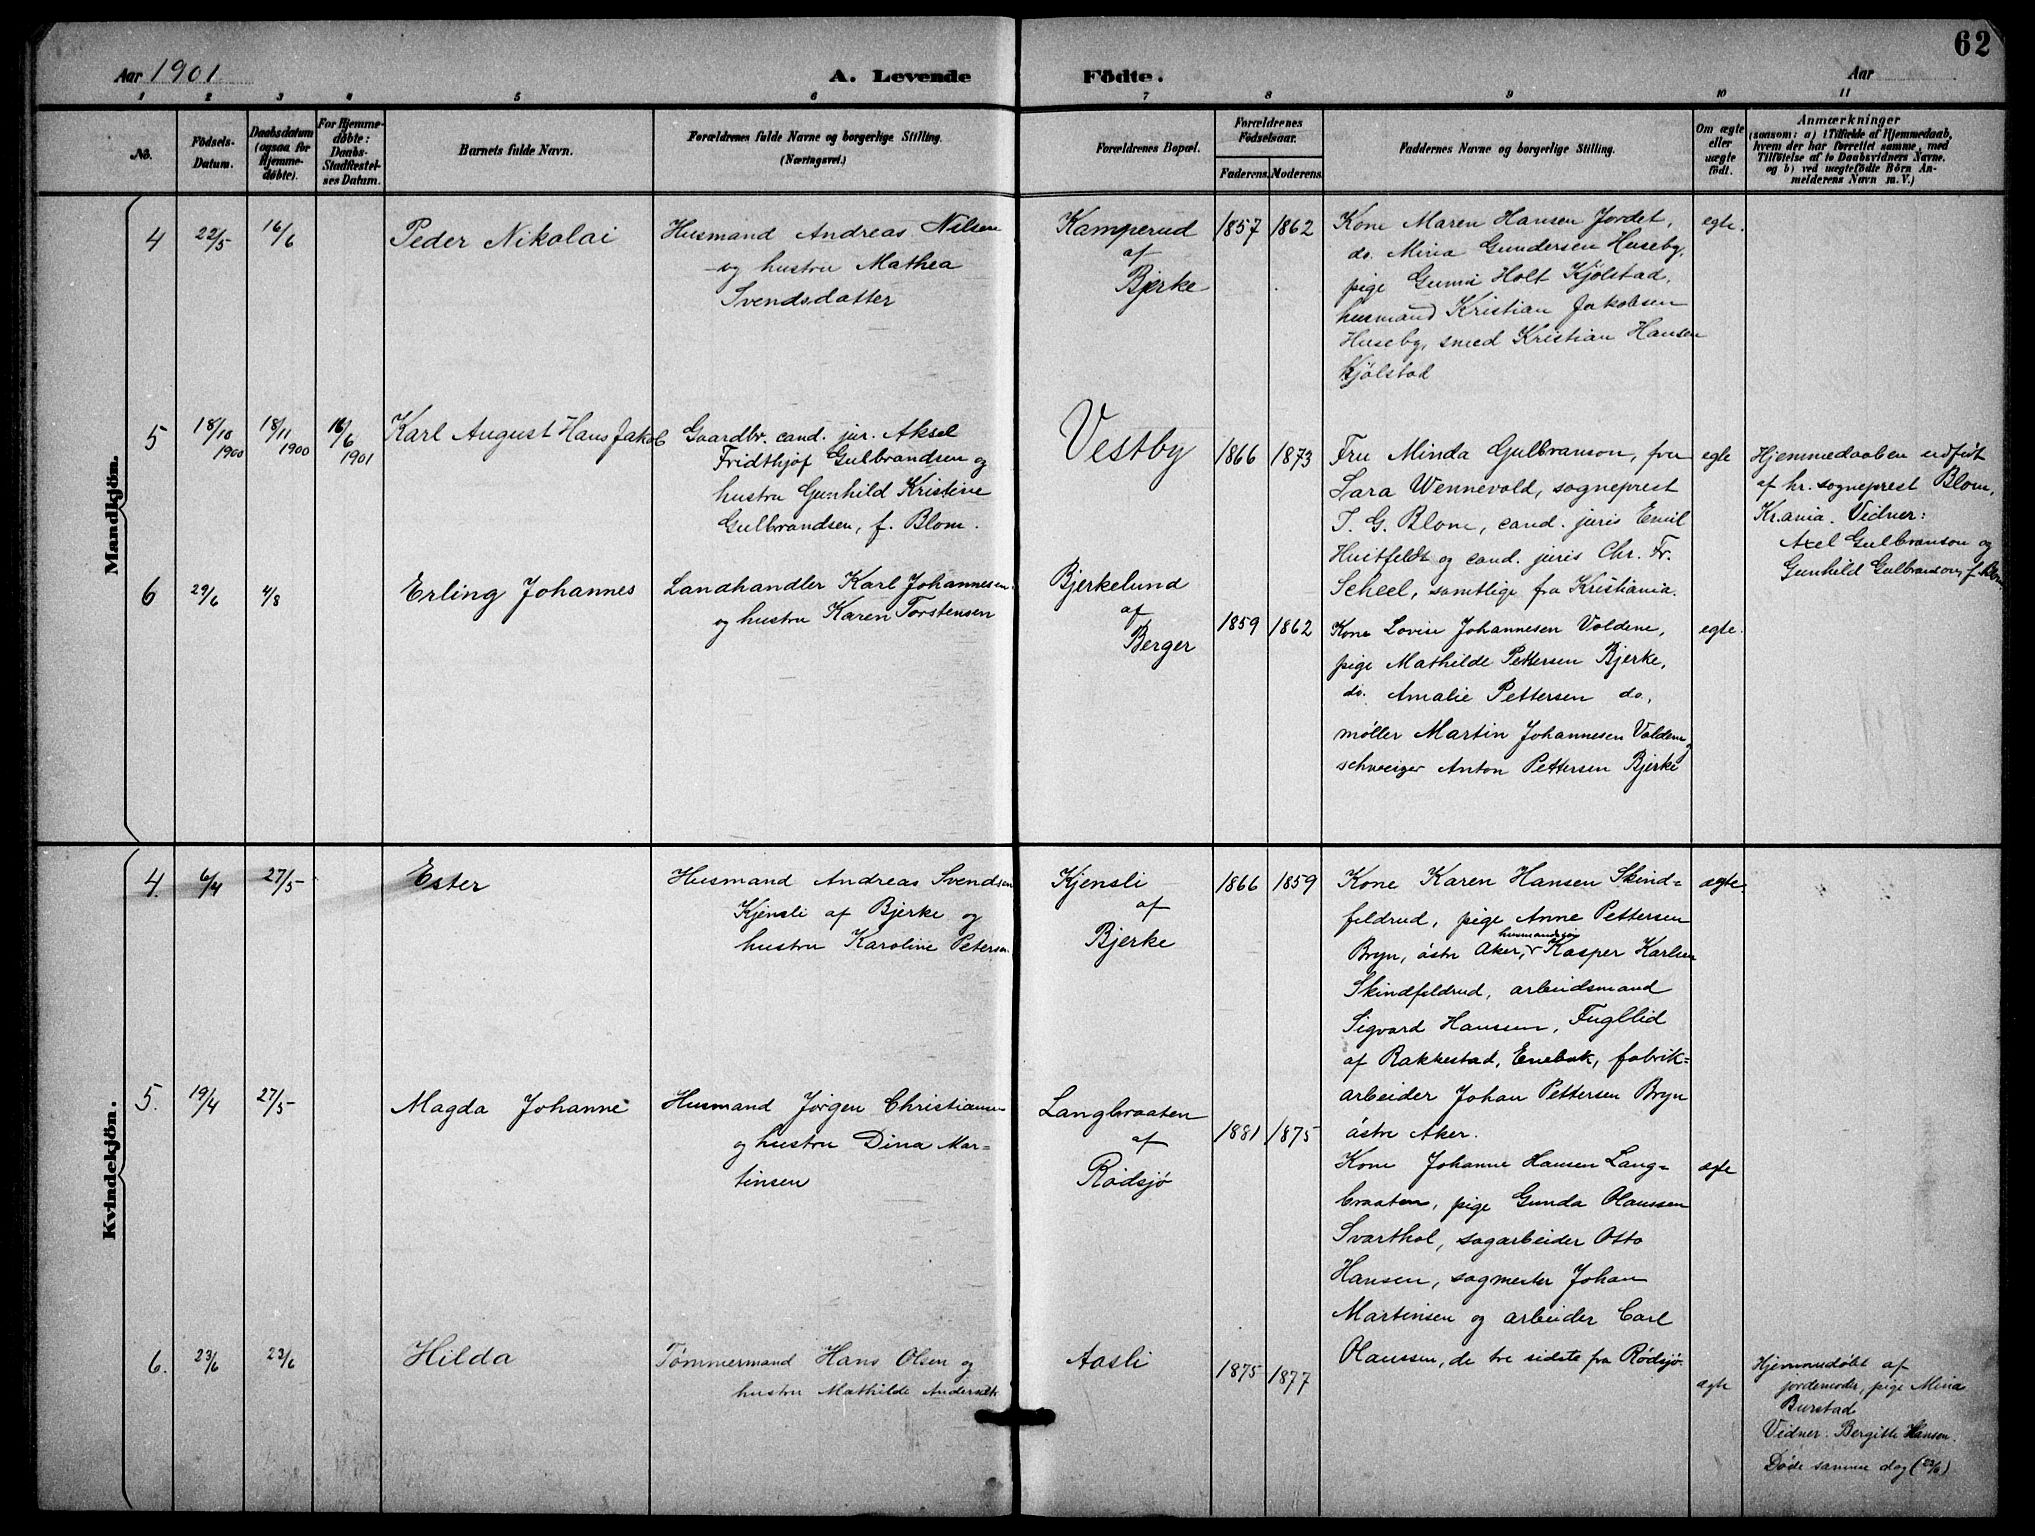 62
Aar 1901
A. Levende Födte.
Aar
1 2 3 4 5 6 7 8 9 10 11
No.
Födsels-
Datum.
Daabsdatum
(ogsaa for
Hjemme-
døbte).
For Hjemme-
døbte:
Daabs-
Stadfæstel-
ses Datum.
Barnets fulde Navn.
Forældrenes fulde Navne og borgerlige Stilling.
(Næringsvei.)
Forældrenes Bopæl.
Forældrenes
Födselsaar.
Faderens. Moderens.
Faddernes Navne og borgerlige Stilling.
Om ægte
eller
uægte
födt.
Anmærkninger
(saasom: a) i Tilfælde af Hjemmedaab,
hvem der har forrettet samme, med
Tilföielse af to Daabsvidners Navne.
og b) ved uægtefödte Börn An-
melderens Navn m. V.)
Mandkjön.
4 22/5 16/6
Peder Nikolai
Husmand Andreas Nilsen
og hustru Mathea
Svendsdatter
Kamperud
af
Bjerke
1857 1862
Kone Maren Hansen Jordet,
do. Mina Gundersen Huseby,
pige Gunni Holt Kjölstad,
husmand Kristian Jakobsen
Huseby, smed Kristian Hansen
Kjölstad
egte.
5 18/10 1900 18/11 1900 16/6 1901
Karl August Hans Jakob
Gaardbr. cand. jur. Aksel
Fridthjof Gulbrandsen og
hustru Gunhild Kristine
Gulbrandsen, f. Blom.
Vestby
1866 1873
Fru Minda Gulbranson, fru
Sara Wennevold, sogneprest
T. G. Blom, cand. juris Emil
Huitfeldt og cand. juris Chr. Fr.
Scheel, samtlige fra Kristiania.
egte
Hjemmedaaben udført
af hr. sogneprest Blom,
Kr.ania. Vidner:
Axel Gulbranson og
Gunhild Gulbranson, f. Blom
6 29/6 4/8
Erling Johannes
Landhandler Karl Johannesen
og hustru Karen Torstensen
Bjerkelund
af
Berger
1859 1862
Kone Lovise Johannesen Voldene,
pige Mathilde Pettersen Bjerke,
do. Amalie Pettersen do,
møller Martin Johannesen Voldene
schweizer Anton Pettersen Bjerke
egte.
Kvindekjön.
4. 6/4 27/5
Ester
Husmand Andreas Svendsen
Kjensli af Bjerke og
hustru Karoline Petersen
Kjensli
af
Bjerke
1866 1859
Kone Karen Hansen Skind=
feldrud, pige Anne Pettersen
Bryn, östre Aker, husmandssøn Kasper Karlsen
Skindfeldrud, arbeidsmand
Sigvard Hansen, Fugllid
af Rakkestad, Enebak, fabrik=
arbeider Johan Pettersen Bryn
östre Aker.
ægte.
5. 19/4 27/5
Magda Johanne
Husmand Jørgen Christiansen
og hustru Dina Mar=
tinsen
Langbraaten
af
Rødsjø
1881 1875
Kone Johanne Hansen Lang=
braaten, pige Gunda Olaussen
Svarthol, sagarbeider Otto
Hansen, sagmester Johan
Martinsen og arbeider Carl
Olaussen, de tre sidste fra Rødsjø.
ægte
6. 23/6 23/6
Hilda
Tømmermand Hans Olsen og
hustru Mathilde Andersdt.
Aasli
1875 1877
ægte
Hjemmedøbt af
jordemoder, pige Mina
Burstad
Vidner: Bergitte Hansen.
Døde samme dag (23/6)